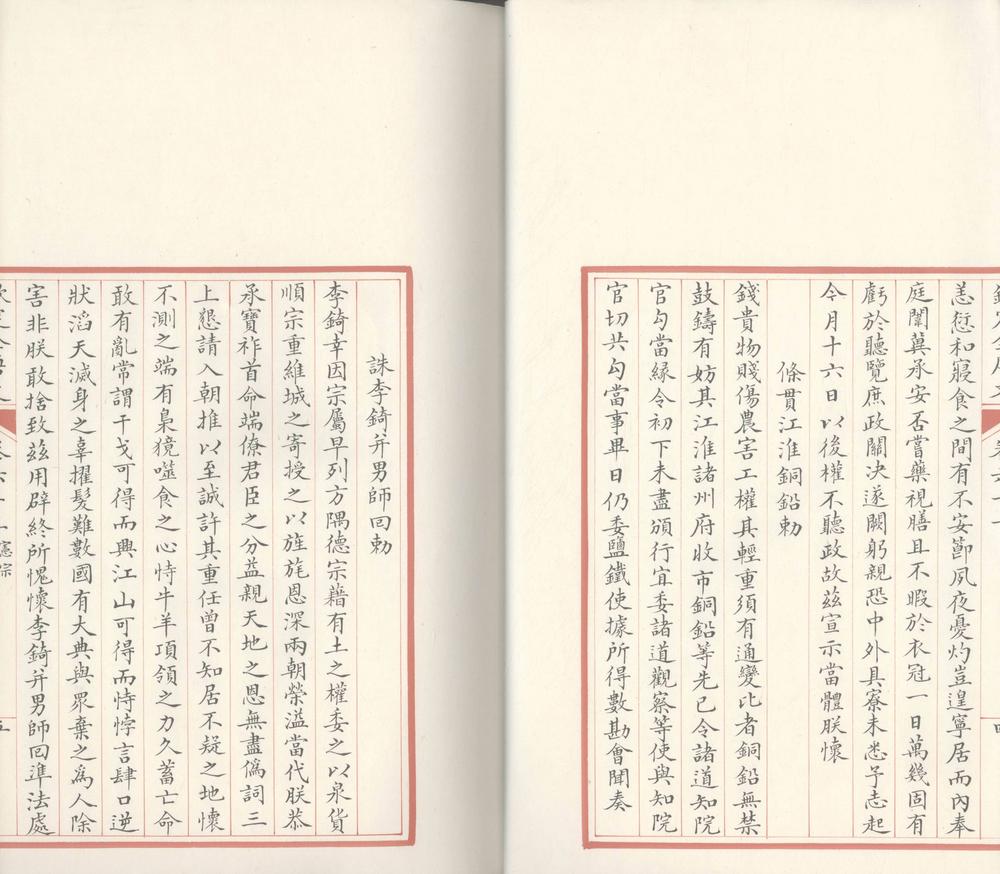 恙愆和寢食之間有不安節夙夜憂灼豈遑寧居而內奉
庭闈冀承安否嘗藥視膳且不暇於衣冠一日萬幾固有
虧於聽覽庶政關決遂闕躬親恐中外具寮未悉予志起
今月十六日以後權不聽政故茲宣示當體朕懷
條貫江淮銅鉛勅
錢貴物賤傷農害工權其輕重須有通變比者銅鉛無禁
鼓鑄有妨其江淮諸州府收市銅鉛等先已令諸道知院
官勾當緣令初下未盡頒行宜委諸道觀察等使與知院
官切共勾當事畢日仍委鹽鐵使據所得數勘會聞奏
誅李錡并男師回勅
李錡幸因宗屬早列方隅德宗藉有土之權委之以泉貨
順宗重維城之寄授之以旌旄恩深兩朝榮溢當代朕恭
承寶祚首命端僚君臣之分益親天地之恩無盡偽詞三
上懇請入朝推以至誠許其重任曾不知居不疑之地懷
不測之端有梟獍噬食之心恃牛羊項領之力久蓄亡命
敢有亂常謂干戈可得而興江山可得而恃悖言肆口逆
狀滔天滅身之辜擢髮難數國有大典與眾棄之為人除
害非朕敢捨致茲用辟終所愧懷李錡并男師回準法處